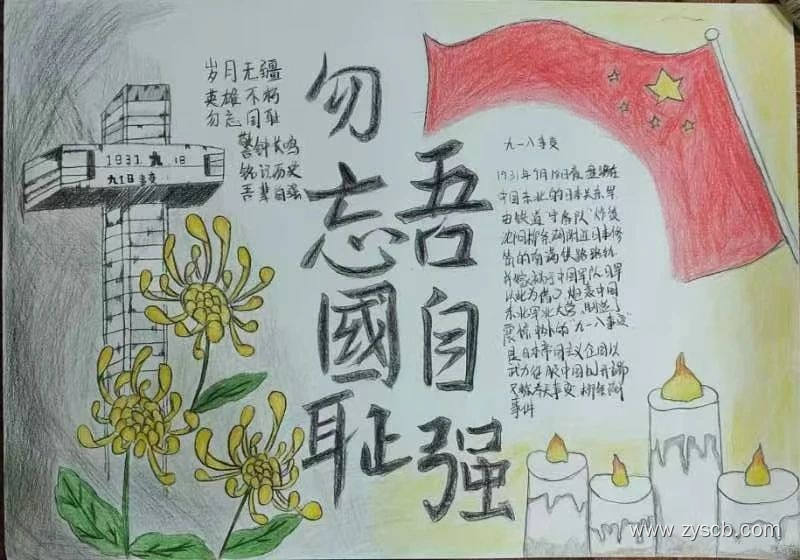 岁月无疆
英雄不朽
勿忘国耻
警钟长鸣
铭记历史
吾辈自强
1931.九.18
九一八事变
勿忘國耻
吾自强
九一八事变
1931年9月18日夜
中国东北的日本关东军
由铁道"守备队"炸毁
沈阳柳条湖附近日本修
筑的南满铁路路轨
并嫁祸于中国军队日军
以此为借口炮轰中国
东北军北大营制造了
震惊中外的"九一八事变"
是日本帝国主义企图以
武力征服中国的开端
又称奉天事变 柳条湖
事件
www.zyscb.com